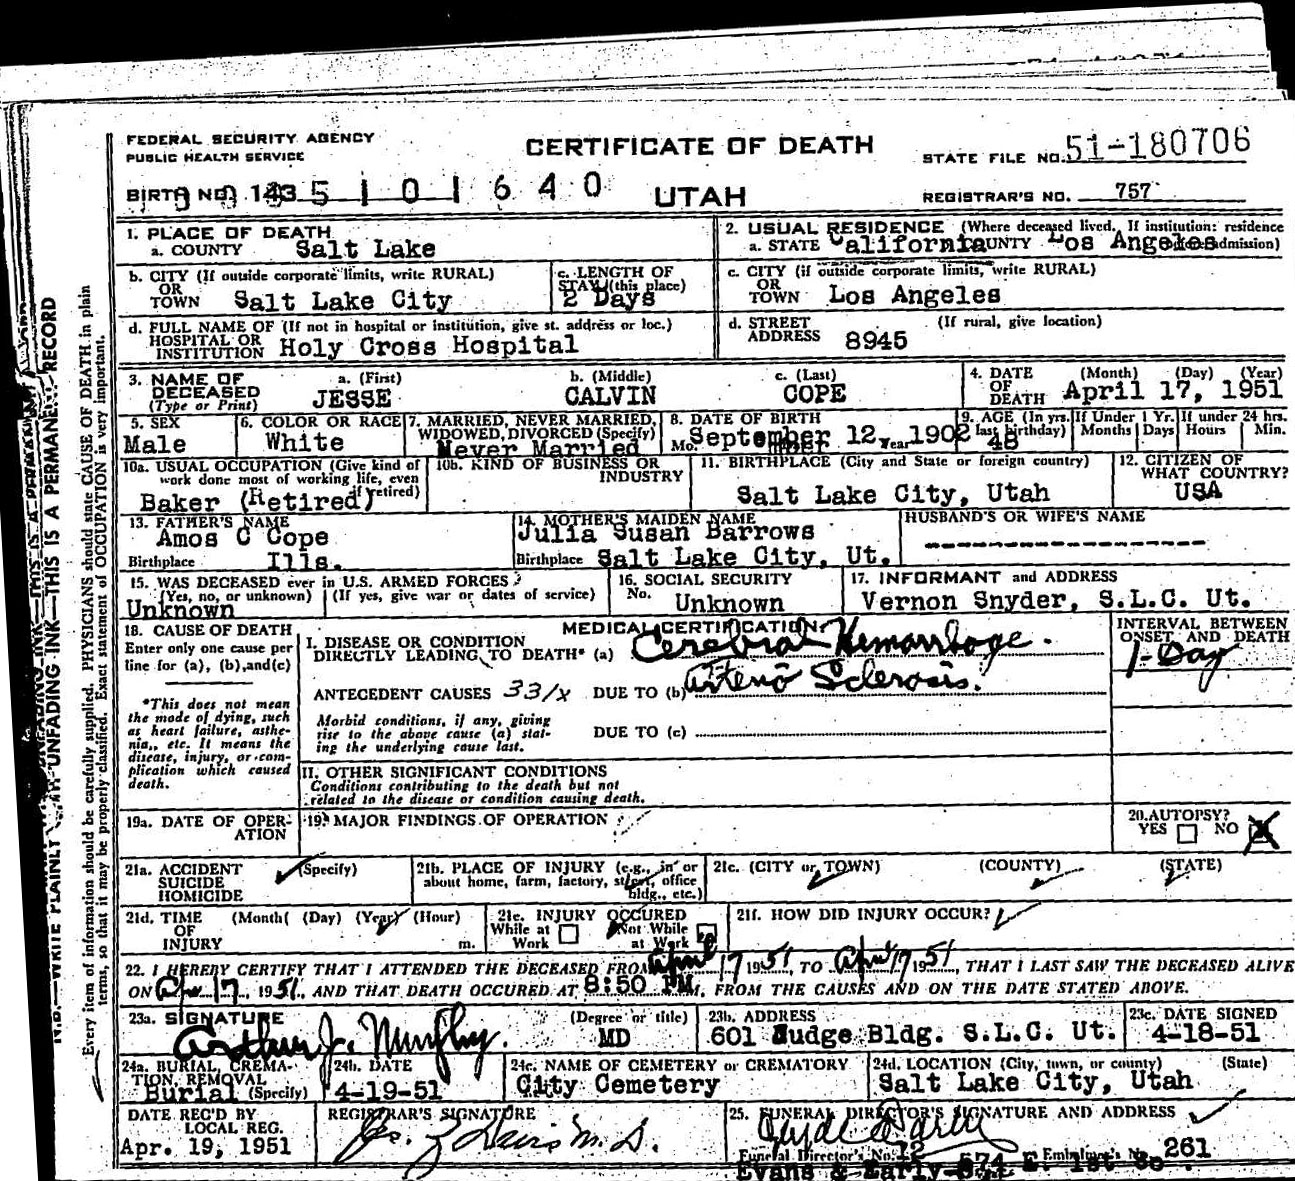 FEDERAL SECURITY AGENCY
PUBLIC HEALTH SERVICE
CERTIFICATE OF DEATH
STATE FILE NO. 51-180706
BIRTH NO. 143 5 1 0 1 6 4 0
UTAH
REGISTRAR'S NO. 757
1. PLACE OF DEATH
a. COUNTY Salt Lake
2. USUAL RESIDENCE (Where deceased lived. If institution: residence
a. STATE California COUNTY Los Angeles admission)
b. CITY (If outside corporate limits, write RURAL)
OR
TOWN Salt Lake City
c. LENGTH OF
STAY (this place)
2 Days
c. CITY (if outside corporate limits, write RURAL)
OR
TOWN Los Angeles
d. FULL NAME OF (If not in hospital or institution, give st. address or loc.)
HOSPITAL OR
INSTITUTION Holy Cross Hospital
d. STREET (If rural, give location)
ADDRESS 8945
3. NAME OF DECEASED (Type or Print)
a. (First) b. (Middle) c. (Last)
JESSE CALVIN COPE
4. DATE OF DEATH (Month) (Day) (Year)
April 17, 1951
5. SEX
Male
6. COLOR OR RACE
White
7. MARRIED, NEVER MARRIED,
WIDOWED, DIVORCED (Specify)
Never Married
8. DATE OF BIRTH
Mo. September 12, Year 1902
9. AGE (In yrs. last birthday)
48
If Under 1 Yr. Months Days
If under 24 hrs. Hours Min.
10a. USUAL OCCUPATION (Give kind of
work done most of working life, even
if retired)
Baker (Retired)
10b. KIND OF BUSINESS OR
INDUSTRY
11. BIRTHPLACE (City and State or foreign country)
Salt Lake City, Utah
12. CITIZEN OF
WHAT COUNTRY?
USA
13. FATHER'S NAME
Amos C Cope
Birthplace Ills.
14. MOTHER'S MAIDEN NAME
Julia Susan Barrows
Birthplace Salt Lake City, Ut.
HUSBAND'S OR WIFE'S NAME
15. WAS DECEASED ever in U.S. ARMED FORCES?
(Yes, no, or unknown) (If yes, give war or dates of service)
Unknown
16. SOCIAL SECURITY
No. Unknown
17. INFORMANT and ADDRESS
Vernon Snyder, S.L.C. Ut.
18. CAUSE OF DEATH
Enter only one cause per
line for (a), (b), and (c)
*This does not mean
the mode of dying, such
as heart failure, asthe-
nia,, etc. It means the
disease, injury, or com-
plication which caused
death.
MEDICAL CERTIFICATION
I. DISEASE OR CONDITION
DIRECTLY LEADING TO DEATH* (a) Cerebral Hemorrhage.
ANTECEDENT CAUSES 331x DUE TO (b) Arterio Sclerosis.
Morbid conditions, if any, giving
rise to the above cause (a) stat-
ing the underlying cause last.
DUE TO (c)
INTERVAL BETWEEN
ONSET AND DEATH
1-Day
II. OTHER SIGNIFICANT CONDITIONS
Conditions contributing to the death but not
related to the disease or condition causing death.
19a. DATE OF OPER-
ATION
19b MAJOR FINDINGS OF OPERATION
20. AUTOPSY?
YES NO X
21a. ACCIDENT (Specify)
SUICIDE
HOMICIDE
21b. PLACE OF INJURY (e.g., in or
about home, farm, factory, street, office
bldg., etc.)
21c. (CITY or TOWN) (COUNTY) (STATE)
21d. TIME (Month( (Day) (Year) (Hour)
OF
INJURY m.
21e. INJURY OCCURED
While at Work Not While at Work
21f. HOW DID INJURY OCCUR?
22. I HEREBY CERTIFY THAT I ATTENDED THE DECEASED FROM April 17 1951, TO Apr 17 1951, THAT I LAST SAW THE DECEASED ALIVE
ON Apr 17, 1951, AND THAT DEATH OCCURED AT 8:50 PM, FROM THE CAUSES AND ON THE DATE STATED ABOVE.
23a. SIGNATURE (Degree or title)
Arthur J. Murphy. MD
23b. ADDRESS
601 Judge Bldg. S.L.C. Ut.
23c. DATE SIGNED
4-18-51
24a. BURIAL, CREMA-
TION, REMOVAL
Burial (Specify)
24b. DATE
4-19-51
24c. NAME OF CEMETERY or CREMATORY
City Cemetery
24d. LOCATION (City, town, or county) (State)
Salt Lake City, Utah
DATE REC'D BY
LOCAL REG.
Apr. 19, 1951
REGISTRAR'S SIGNATURE
Davis M. D.
25. FUNERAL DIRECTOR'S SIGNATURE AND ADDRESS
Funeral Director's No. 12 Embalmer's No. 261
Evans & Early-574 E. 1st So.
WRITE PLAINLY UNFADING INK—THIS IS A PERMANENT RECORD
Every item of information should be carefully supplied. PHYSICIANS should state CAUSE OF DEATH in plain
terms, so that it may be properly classified. Exact statement of OCCUPATION is very important.